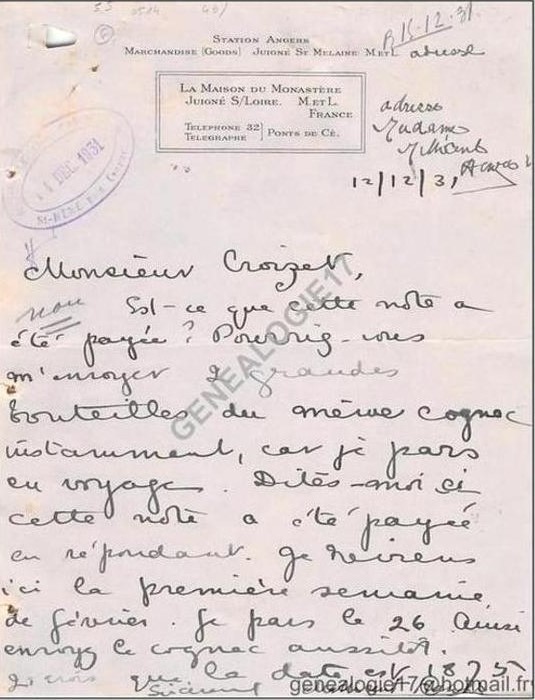 Station Angers
Marchandise (Goods) Juigné St Melaine M et L
R 15.12.31.
adresse
La Maison du Monastère
Juigné S/Loire. M. et L.
France
Telephone 32
Telegraphe
Ponts de Cé.
adresse
Madame
DEC 1931
12/12/31
Monsieur Croizet,
non
Est-ce que cette note a
été payée? Pourriez-vous
m'envoyer 2 grandes
bouteilles du même cognac
instamment, car je pars
en voyage. Dites-moi si
cette note a été payée
en répondant. Je reviens
ici la première semaine
de février. Je pars le 26 Ainsi
envoyez le cognac aussitôt.
Je crois que la date est 1875
GENEALOGIE17
genealogie17@hotmail.fr